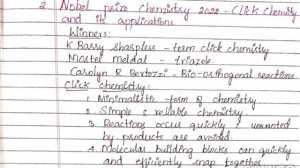 2. Nobel prize Chemistry 2022 - Click Chemistry
and its applications
Winners:
K Barry sharpless - term click chemistry
Mortel meldal - triazole
Carolyn R Bertozzi - Bio-orthogonal reactions
Click chemistry:
1. Minimalistic form of chemistry
2. Simple & reliable chemistry
3. Reactions occur quickly & unwanted
by products are avoided.
4. Molecular building blocks can quickly
and efficiently snap together